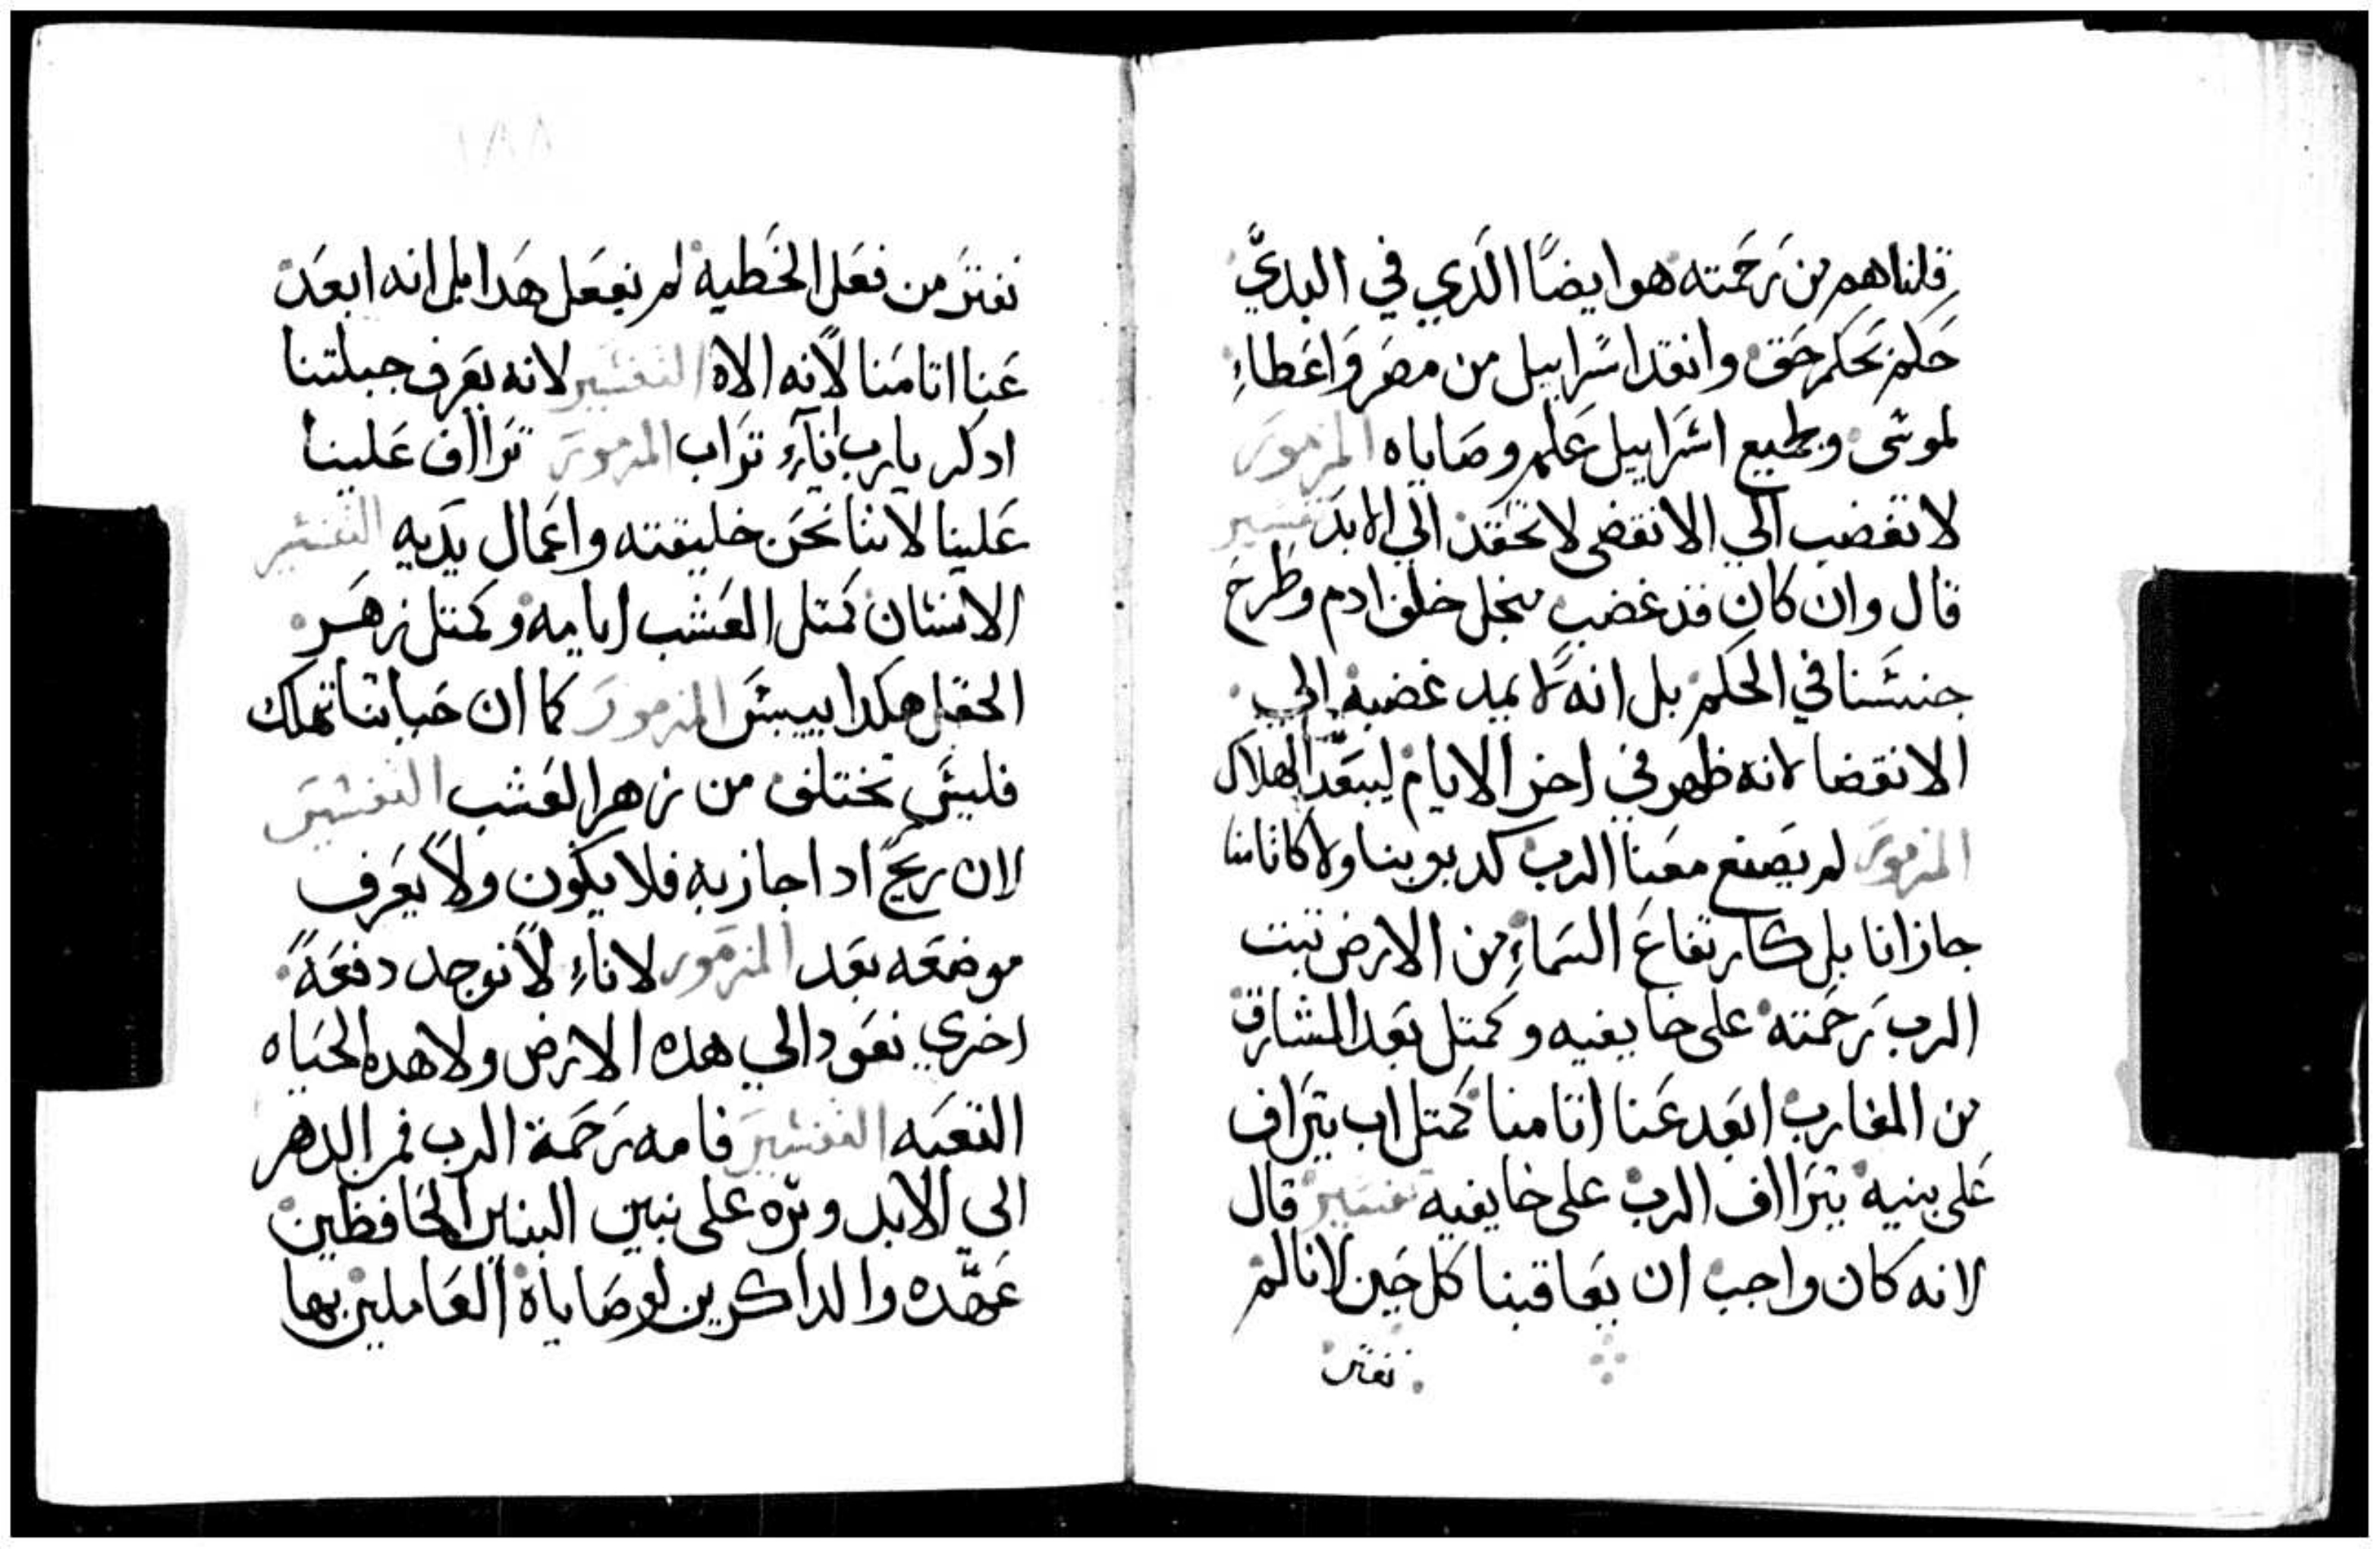 قلناهم من رحمته هو ايضًا الدي في البدي
حكم بحكم حق وانقد اسرابيل من مصر واعطاء
لموسى وجميع اسرابيل علم وصاياه المزمور
لا تغضب الي الانقضى لا تحقد الي الابد تفسير
قال وان كان قد غضب منجل خلف ادم وطرح
جنسنا في الحكم بل انه لا يمد غضبه الي
الانقضا لانه ظهر في اخر الايام ليبعد الهلاك
المزمور لم يصنع معنا الرب كدبوبنا ولا كاتامنا
جازانا بل كارتفاع السماء من الارض تبت
الرب رحمته على خايفيه وكمتل بعد المشارق
من المغارب ابعد عنا اتامنا كمتل اب يتراف
على بنيه يتر ااف الرب على خايفيه تفسير قال
لانه كان واجب ان يعاقبنا كل حين لانا لم
نفتر
نفتر من فعل الخطية لم يفعل هدا بل انه ابعد
عنا اتامنا لانه الاه التفسير لانه يعرف جبلتنا
ادكر يارب انآء تراب المزمور تر ااف علينا
علينا لاننا نحن خليقته واعمال يديه التفسير
الانسان كمتل العشب ايامه وكمتل زهر
الحقل هكدا ييبس المزمور كما ان حياتنا تهلك
فليس تختلف من زهر العشب التفسير
لان ريح ادا جاز به فلا يكون ولا يعرف
موضعه بعد المزمور لاناء لا نوجد دفعة
اخري نعود الي هده الارض ولا هده الحياه
التعبه التفسير فامه رحمة الرب فمن الدهر
الى الابد وبره على بنين البنين الحافظين
عهده والداكرين لوصاياه العاملين بها